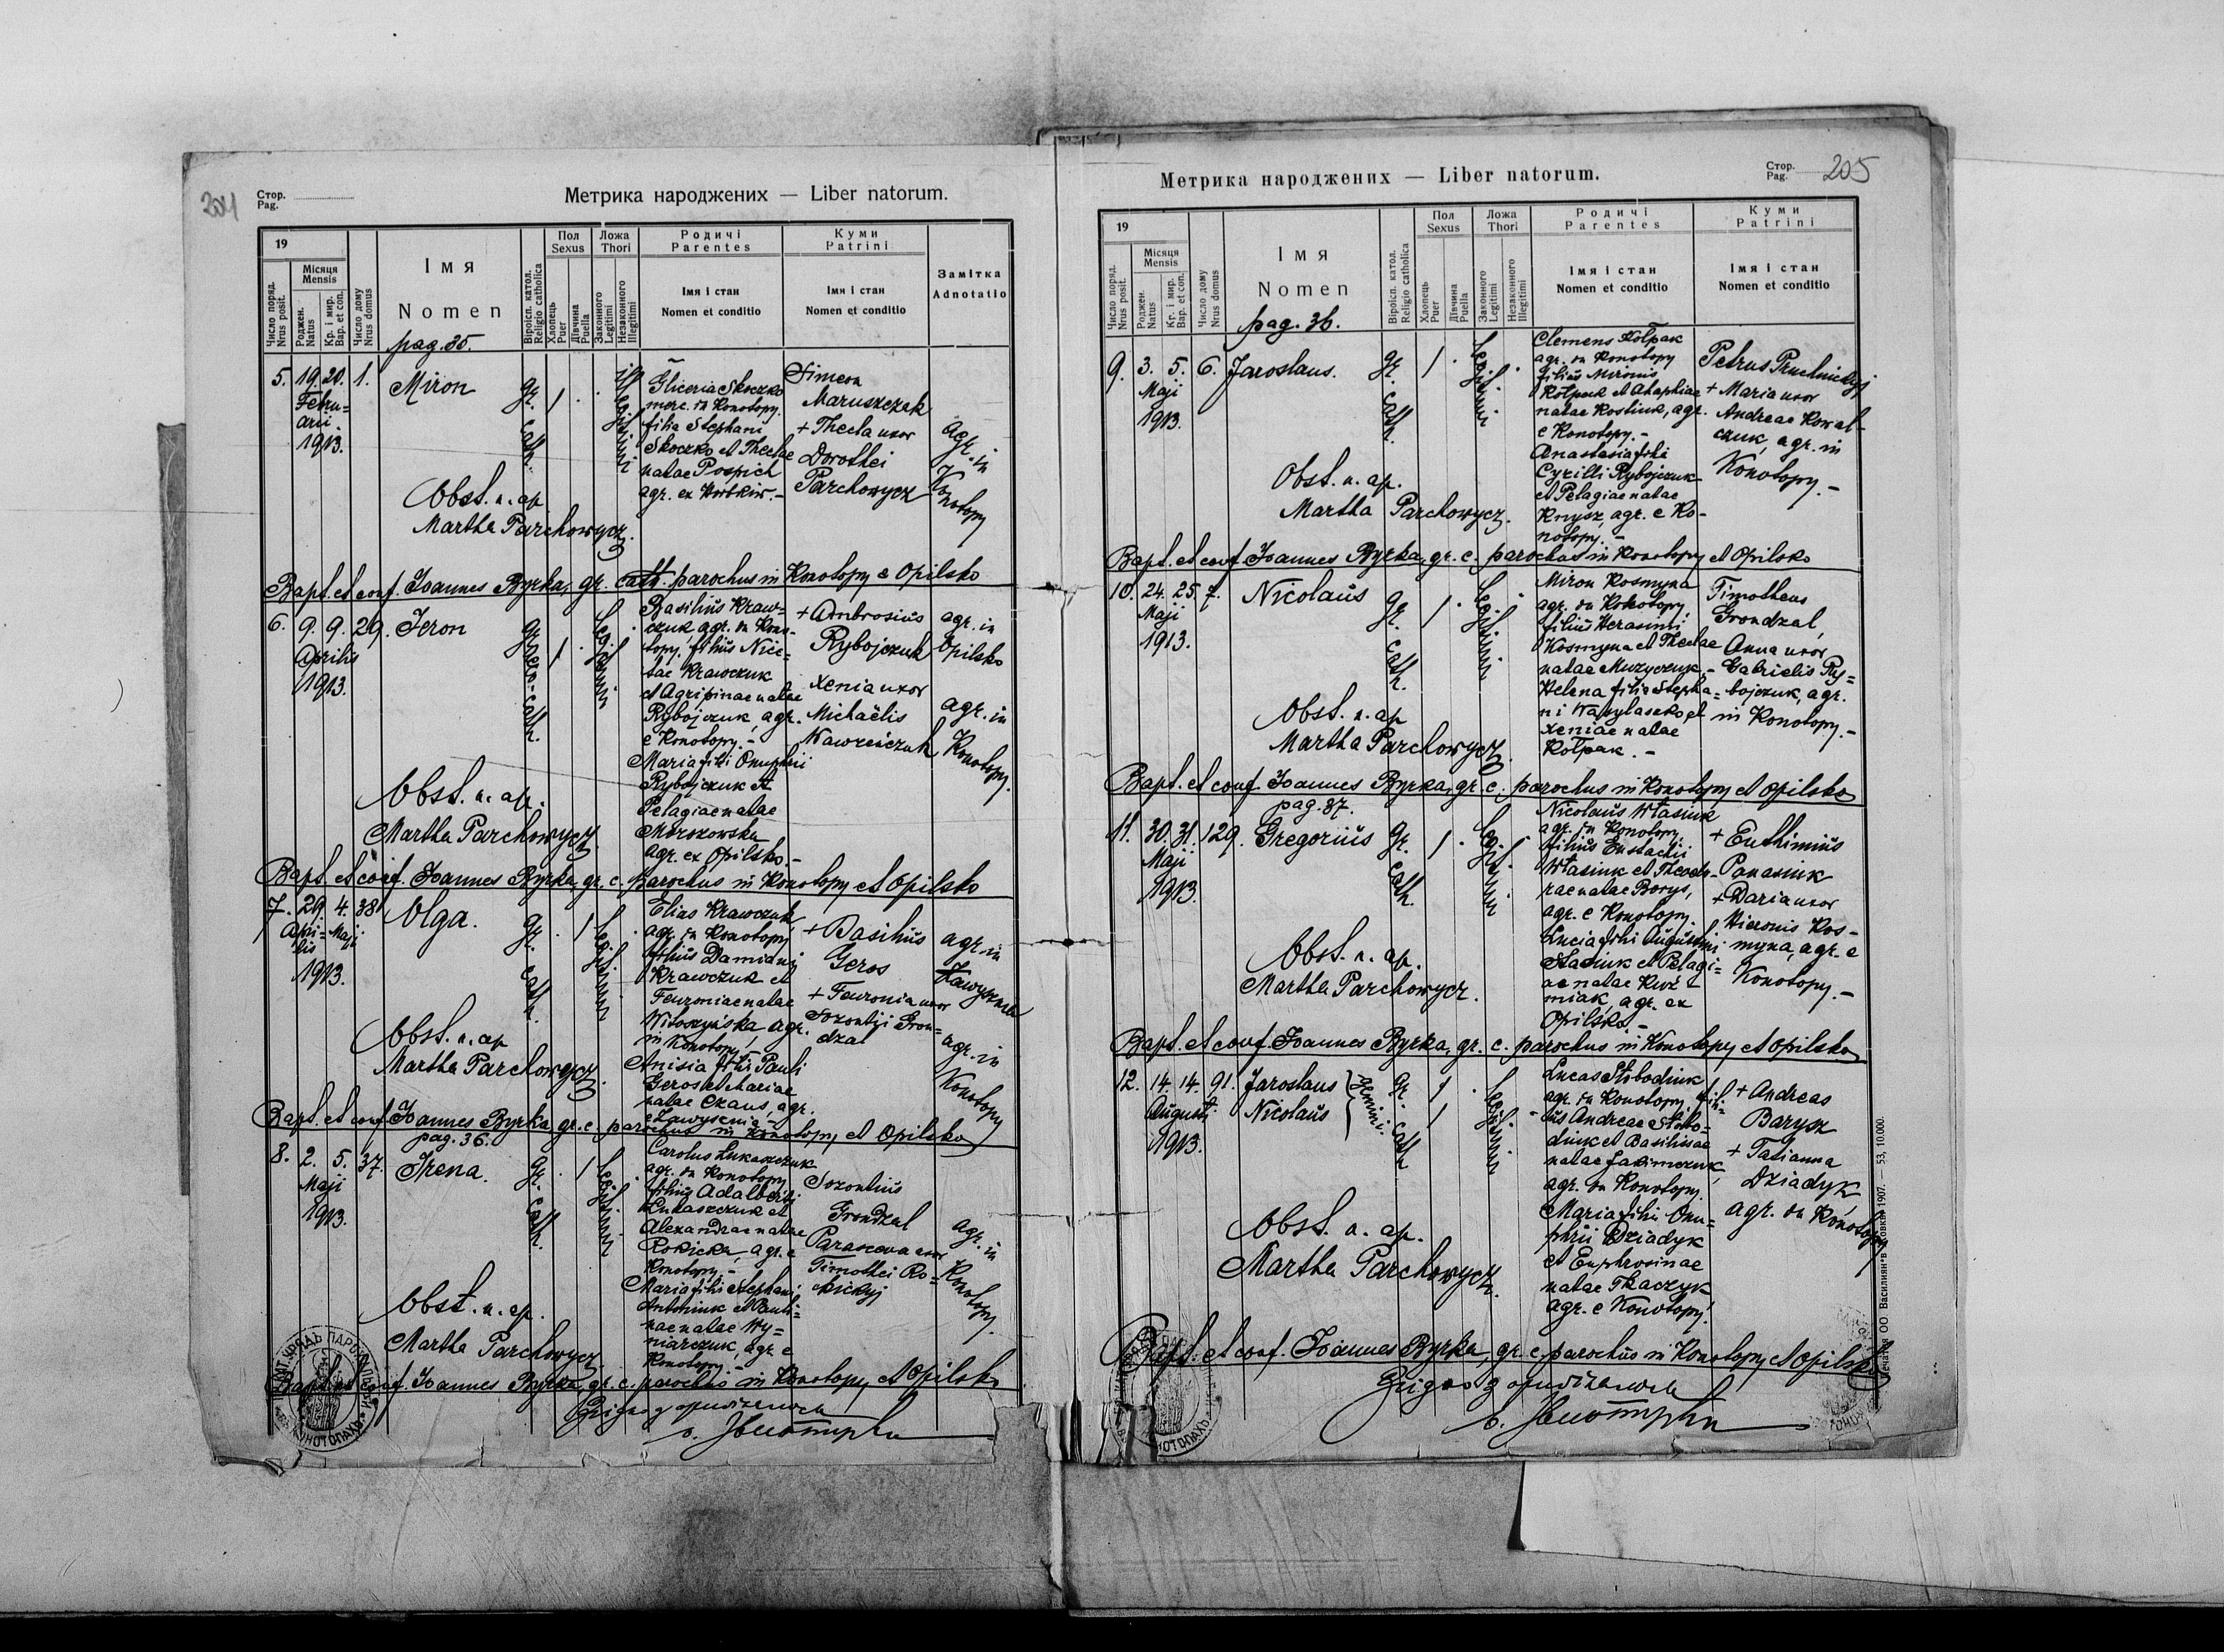 204
Стор.
Pag.
Метрика народжених — Liber natorum.
19
Число поряд.
Nrus posit.
Місяця
Mensis
Роджен.
Natus
Кр. і мир.
Bap. et con.
Число дому
Nrus domus
Імя
Nomen
pag. 35.
Віроісп. катол.
Religio catholica
Пол
Sexus
Хлопець
Puer
Дївчина
Puella
Ложа
Thori
Законного
Legitimi
Незаконного
Illegitimi
Родичі
Parentes
Імя і стан
Nomen et conditio
Куми
Patrini
Імя і стан
Nomen et conditio
Замітка
Adnotatio
5. 19. 20. 1. Miron
Febru=
arii
1913.
gr.
cath.
illegitimi
Gliceria Skoczko
merc. in Konotopy.
filia Stephani
Skoczko et Theclae
natae Pospich
agr. ex
Simeon
Maruszczak
+ Thecla uxor
Dorothei
Parchowycz
agr. in
Konotopy
Obst. n. ap.
Martha Parchowycz.
Bapt. et conf. Joannes Byrka, gr. cath. parochus in Konotopy e Opilsko
6. 9. 9. 29. Jeron
Aprilis
1913.
graeco-cath.
legitimi
Basilius Kraw=
czuk, agr. in Kono-
topy, filius Nice=
tae Krawczuk
et Agripinae natae
Rybojczuk, agr.
e Konotopy. -
Maria fili Onuphrii
Rybojczuk et
Pelagiae natae
Morozowska
agr. ex Opilsko. -
+ Ambrosius
Rybojczuk
Xenia uxor
Michaëlis
Wawreńczuk
agr. in
Opilsko
agr. in
Konotopy.
Obst. n. ap.
Martha Parchowycz
Bapt. et conf. Joannes Byrka, gr. c. parochus in Konotopy et Opilsko
7. 29. 4. 38 Olga.
Apri= Maji
lis
1913.
gr.
cath.
legitimi
Elias Krawczuk
agr. in Konotopy
filius Damiani
Krawczuk et
Feuroniae natae
Witoszyńska, agr.
in Konotopy, -
Anisia fili Pauli
Geros et Mariae
natae Czaus, agr.
e Zawyscnia -
+ Basilius
Geros
+ Feuronia uxor
Sozontji Gron=
dzal
agr. in
agr. in
Konotopy
Obst. n. ap
Martha Parchowycz.
Bapt. et conf. Joannes Byrka, gr. c. parochus in Konotopy et Opilsko
pag. 36.
8. 2. 5. 37. Irena.
Maji
1913.
gr.
cath.
legitimi
Carolus Lukaszczuk
agr. in Konotopy
filius Adalberti
Lukaszczuk et
Alexandrae natae
Rokicka, agr. e
Konotopy. -
Maria fili Stephani
Antoniuk et Pauli=
nae natae Wy=
niarczuk, agr. e
Konotopy. -
Sozontius
Grondzal
Parasceva uxor
Timothei Ro=
kickyj
agr. in
Konotopy.
Obst. n. ap.
Martha Parchowycz
Bapt. et conf. Joannes Byrka, gr. c. parochus in Konotopy et Opilsko
Метрика народжених — Liber natorum.
Стор.
Pag.
205
19
Число поряд.
Nrus posit.
Місяця
Mensis
Роджен.
Natus
Кр. і мир.
Bap. et con.
Число дому
Nrus domus
Імя
Nomen
pag. 36.
Віроісп. катол.
Religio catholica
Пол
Sexus
Хлопець
Puer
Дївчина
Puella
Ложа
Thori
Законного
Legitimi
Незаконного
Illegitimi
Родичі
Parentes
Імя і стан
Nomen et conditio
Куми
Patrini
Імя і стан
Nomen et conditio
9. 3. 5. 6. Jaroslaus.
Maji
1913.
gr.
cath.
legitimi
Clemens Kołpak
agr. in Konotopy
filius Mironis
Kołpak et Ahaphiae
natae Kostiuk, agr.
e Konotopy. -
Anastasia fili
Cyrilli Rybojczuk
et Pelagiae natae
Knysz, agr. e Ko-
notopy. -
Petrus Pruchnickyj
+ Maria uxor
Andreae Kowal-
czuk, agr. in
Konotopy. -
Obst. n. ap.
Martha Parchowycz.
Bapt. et conf. Joannes Byrka, gr. c. parochus in Konotopy et Opilsko
10. 24. 25. 7. Nicolaüs
Maji
1913.
gr.
cath.
legitimi
Miron Kosmyna
agr. in Konotopy,
filius Herasimi
Kosmyna et Theclae
natae Muzyczuk, -
Helena filia Stepha=
ni Wasylaszko et
Xeniae natae
Kołpak. -
Timotheus
Grondzal,
Anna uxor
Gabrielis Ry=
bojczuk, agr.
in Konotopy. -
Obst. n. ap
Martha Parchowycz
Bapt. et conf. Joannes Byrka, gr. c. parochus in Konotopy et Opilsko
pag. 37.
11. 30. 31. 129. Gregoriüs
Maji
1913.
gr.
cath.
legitimi
Nicolaüs Własiuk
agr. in Konotopy,
filius Eustachii
Własiuk et Theodo-
rae natae Borys,
agr. e Konotopy.
Lucia fili Augustini
Stasiuk et Pelagi=
ae natae
miak, agr. ex
Opilsko. -
+ Euthimiüs
Panasiuk
+ Daria uxor
Hieronis Kos-
myna, agr. e
Konotopy. -
Obst. n. ap.
Martha Parchowycz.
Bapt. et conf. Joannes Byrka, gr. c. parochus in Konotopy et Opilsko
12. 14. 14. 91. Jaroslaus
Augusti Nicolaüs
gemini.
1913.
gr.
cath
legitimi
Lucas Stobodiuk
agr. in Konotopy, fili=
us Andreae Stobo-
diuk et Basilissae
natae Jakimczuk,
agr. in Konotopy.
Maria fili Onu=
phrii Dziadyk
et Euphrosinae
natae Tkaczyk
agr. e Konotopy.
+ Andreas
Barysz
+ Tatianna
Dziadyk,
agr. in Konotopy
Obst. n. ap.
Martha Parchowycz.
Bapt. et conf. Joannes Byrka, gr. c. parochus in Konotopy et Opilsko
Печатня ОО. Василиян в Жовкві 1907. — 53, 10.000.